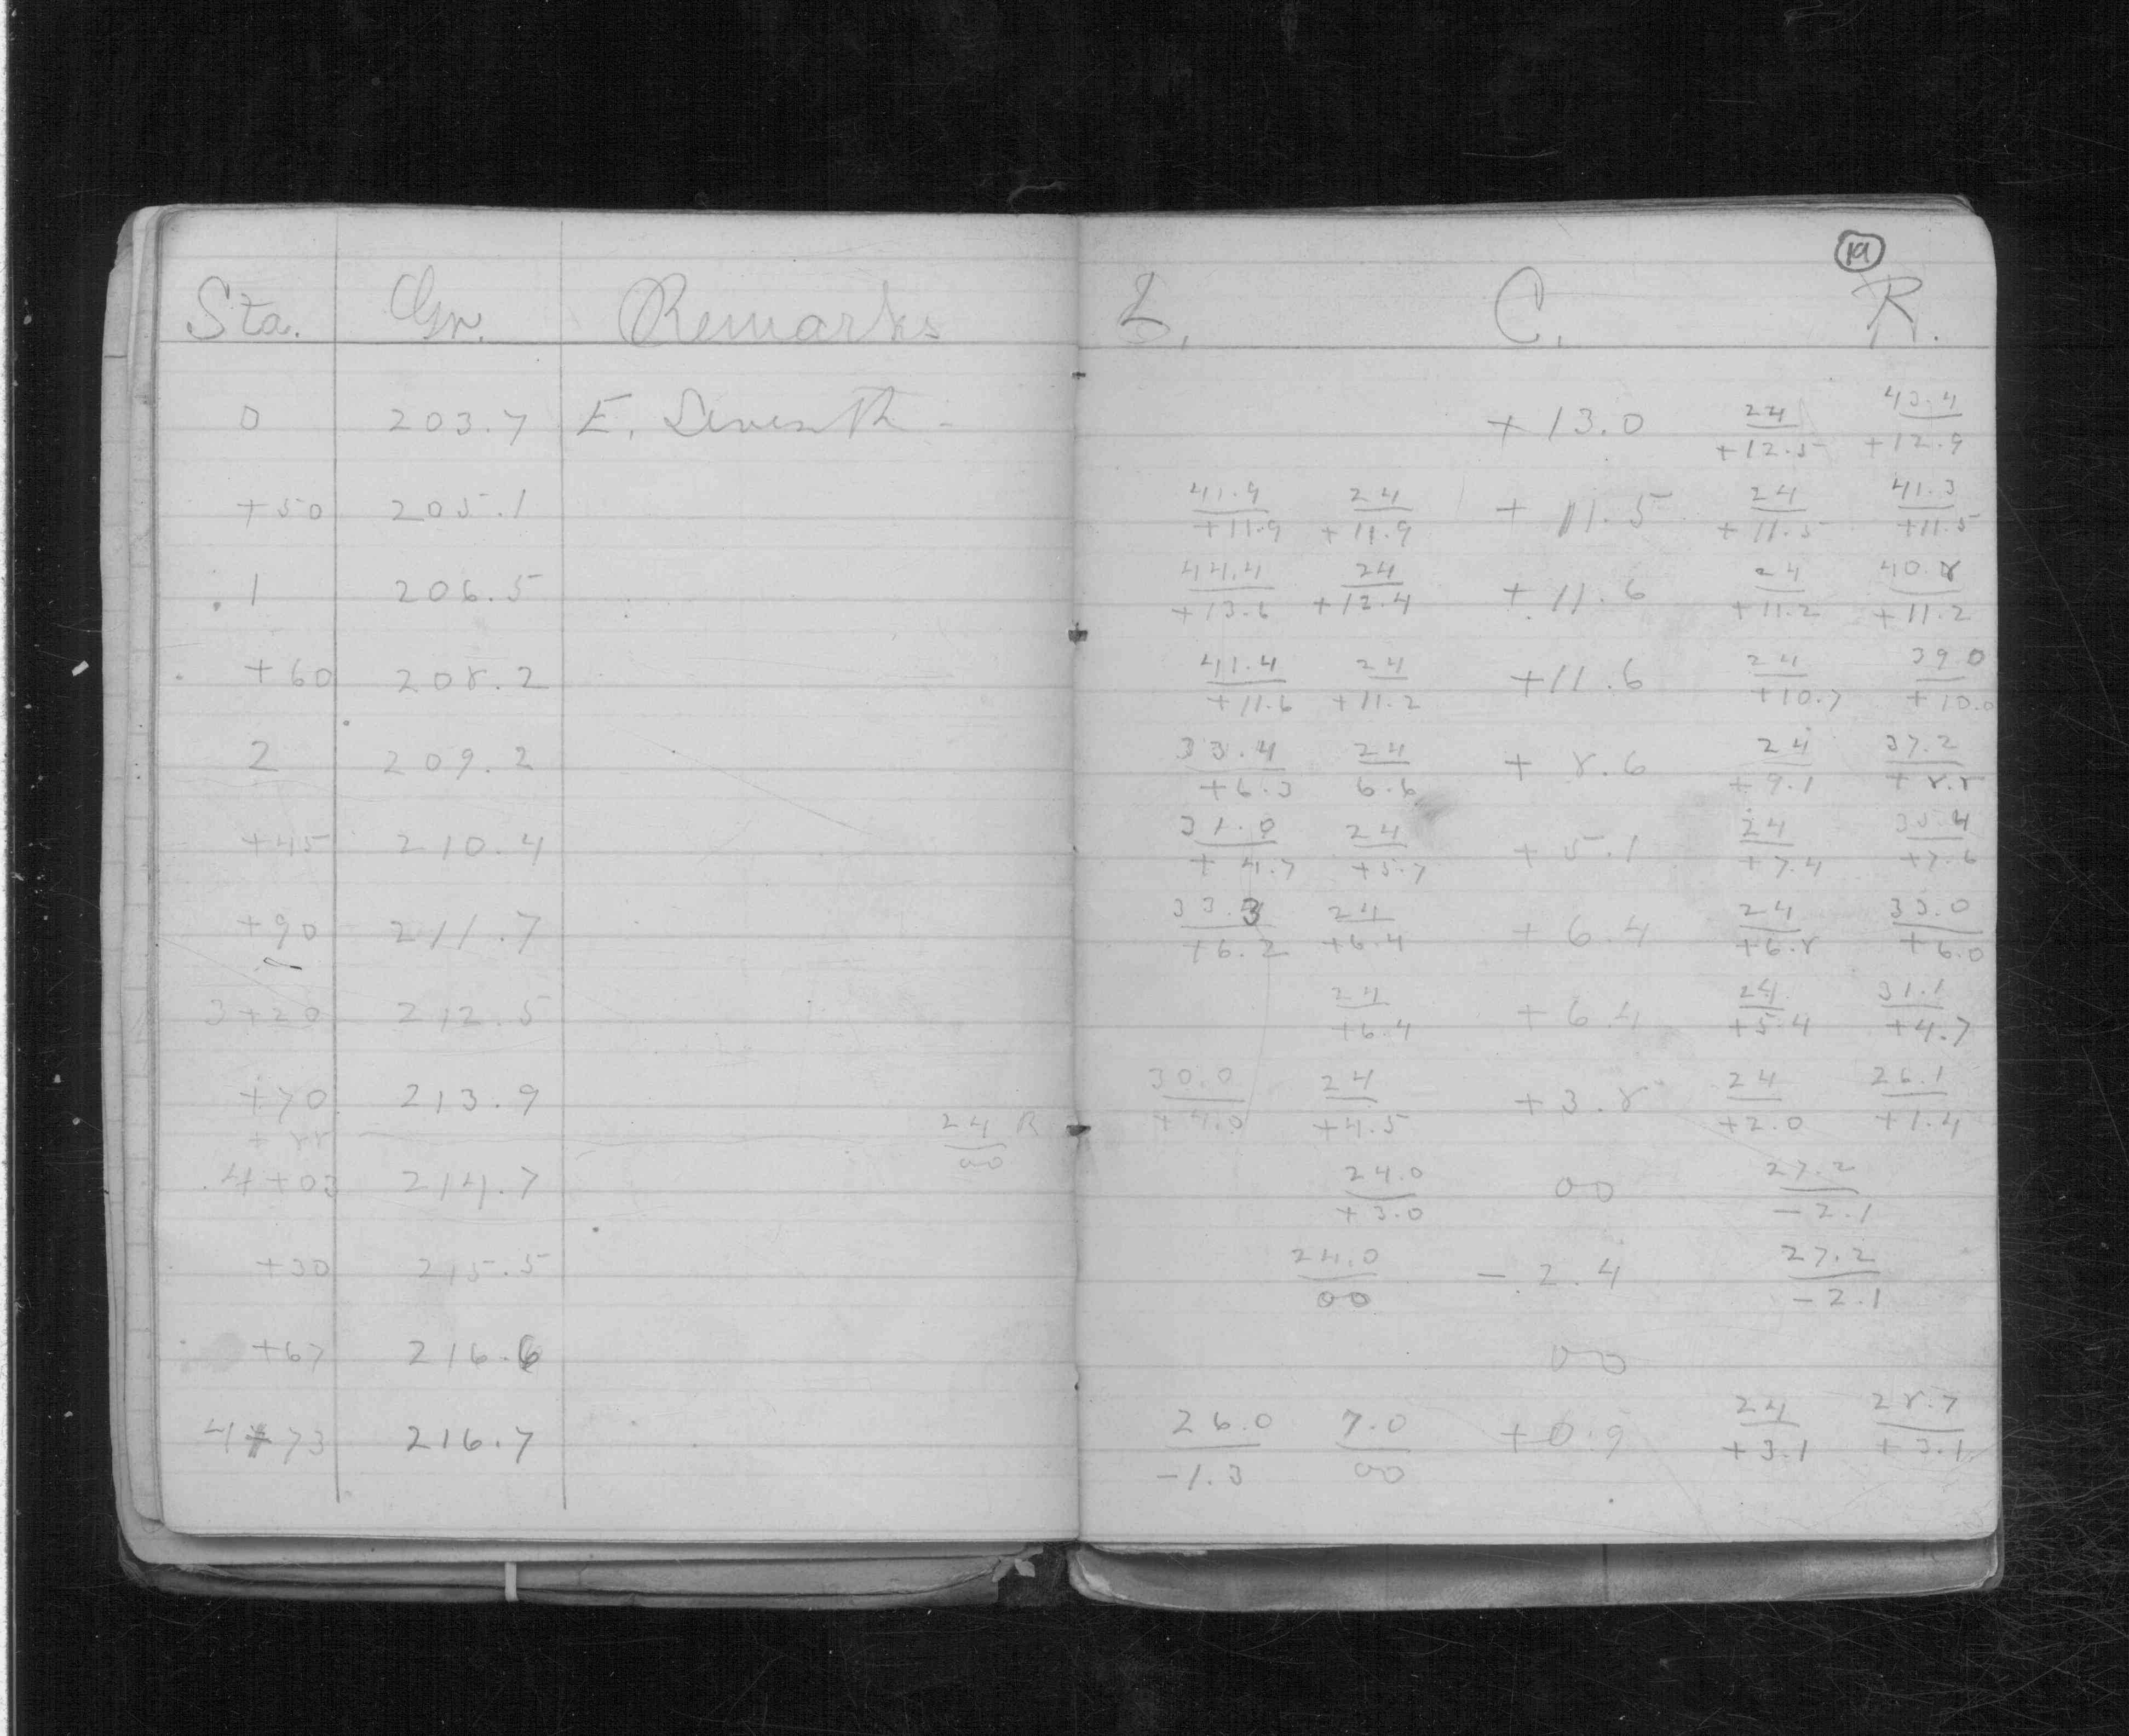 19
Sta. Gr. Remarks L. C. R.
0 203.7 E. Seventh - +13.0 24/+12.5 43.4/+12.9
+50 205.1 41.9/+11.9 24/+11.9 +11.5 24/+11.5 41.3/+11.5
1 206.5 44.4/+13.6 24/+12.4 +11.6 24/+11.2 40.8/+11.2
+60 208.2 41.4/+11.6 24/+11.2 +11.6 24/+10.7 39.0/+10.0
2 209.2 33.4/+6.3 24/6.6 +8.6 24/+9.1 37.2/+8.8
+45 210.4 31.0/+4.7 24/+5.7 +5.1 24/+7.4 35.4/+7.6
+90 211.7 33.3/+6.2 24/+6.4 +6.4 24/+6.8 33.0/+6.0
3+20 212.5 24/+6.4 +6.4 24/+5.4 31.1/+4.7
+70 213.9 30.0/+4.0 24/+4.5 +3.8 24/+2.0 26.1/+1.4
+88 24/00 R
4+03 214.7 24.0/+3.0 00 27.2/-2.1
+30 215.5 24.0/00 -2.4 27.2/-2.1
+67 216.6 00
4+73 216.7 26.0/-1.3 7.0/00 +0.9 24/+3.1 28.7/+3.1